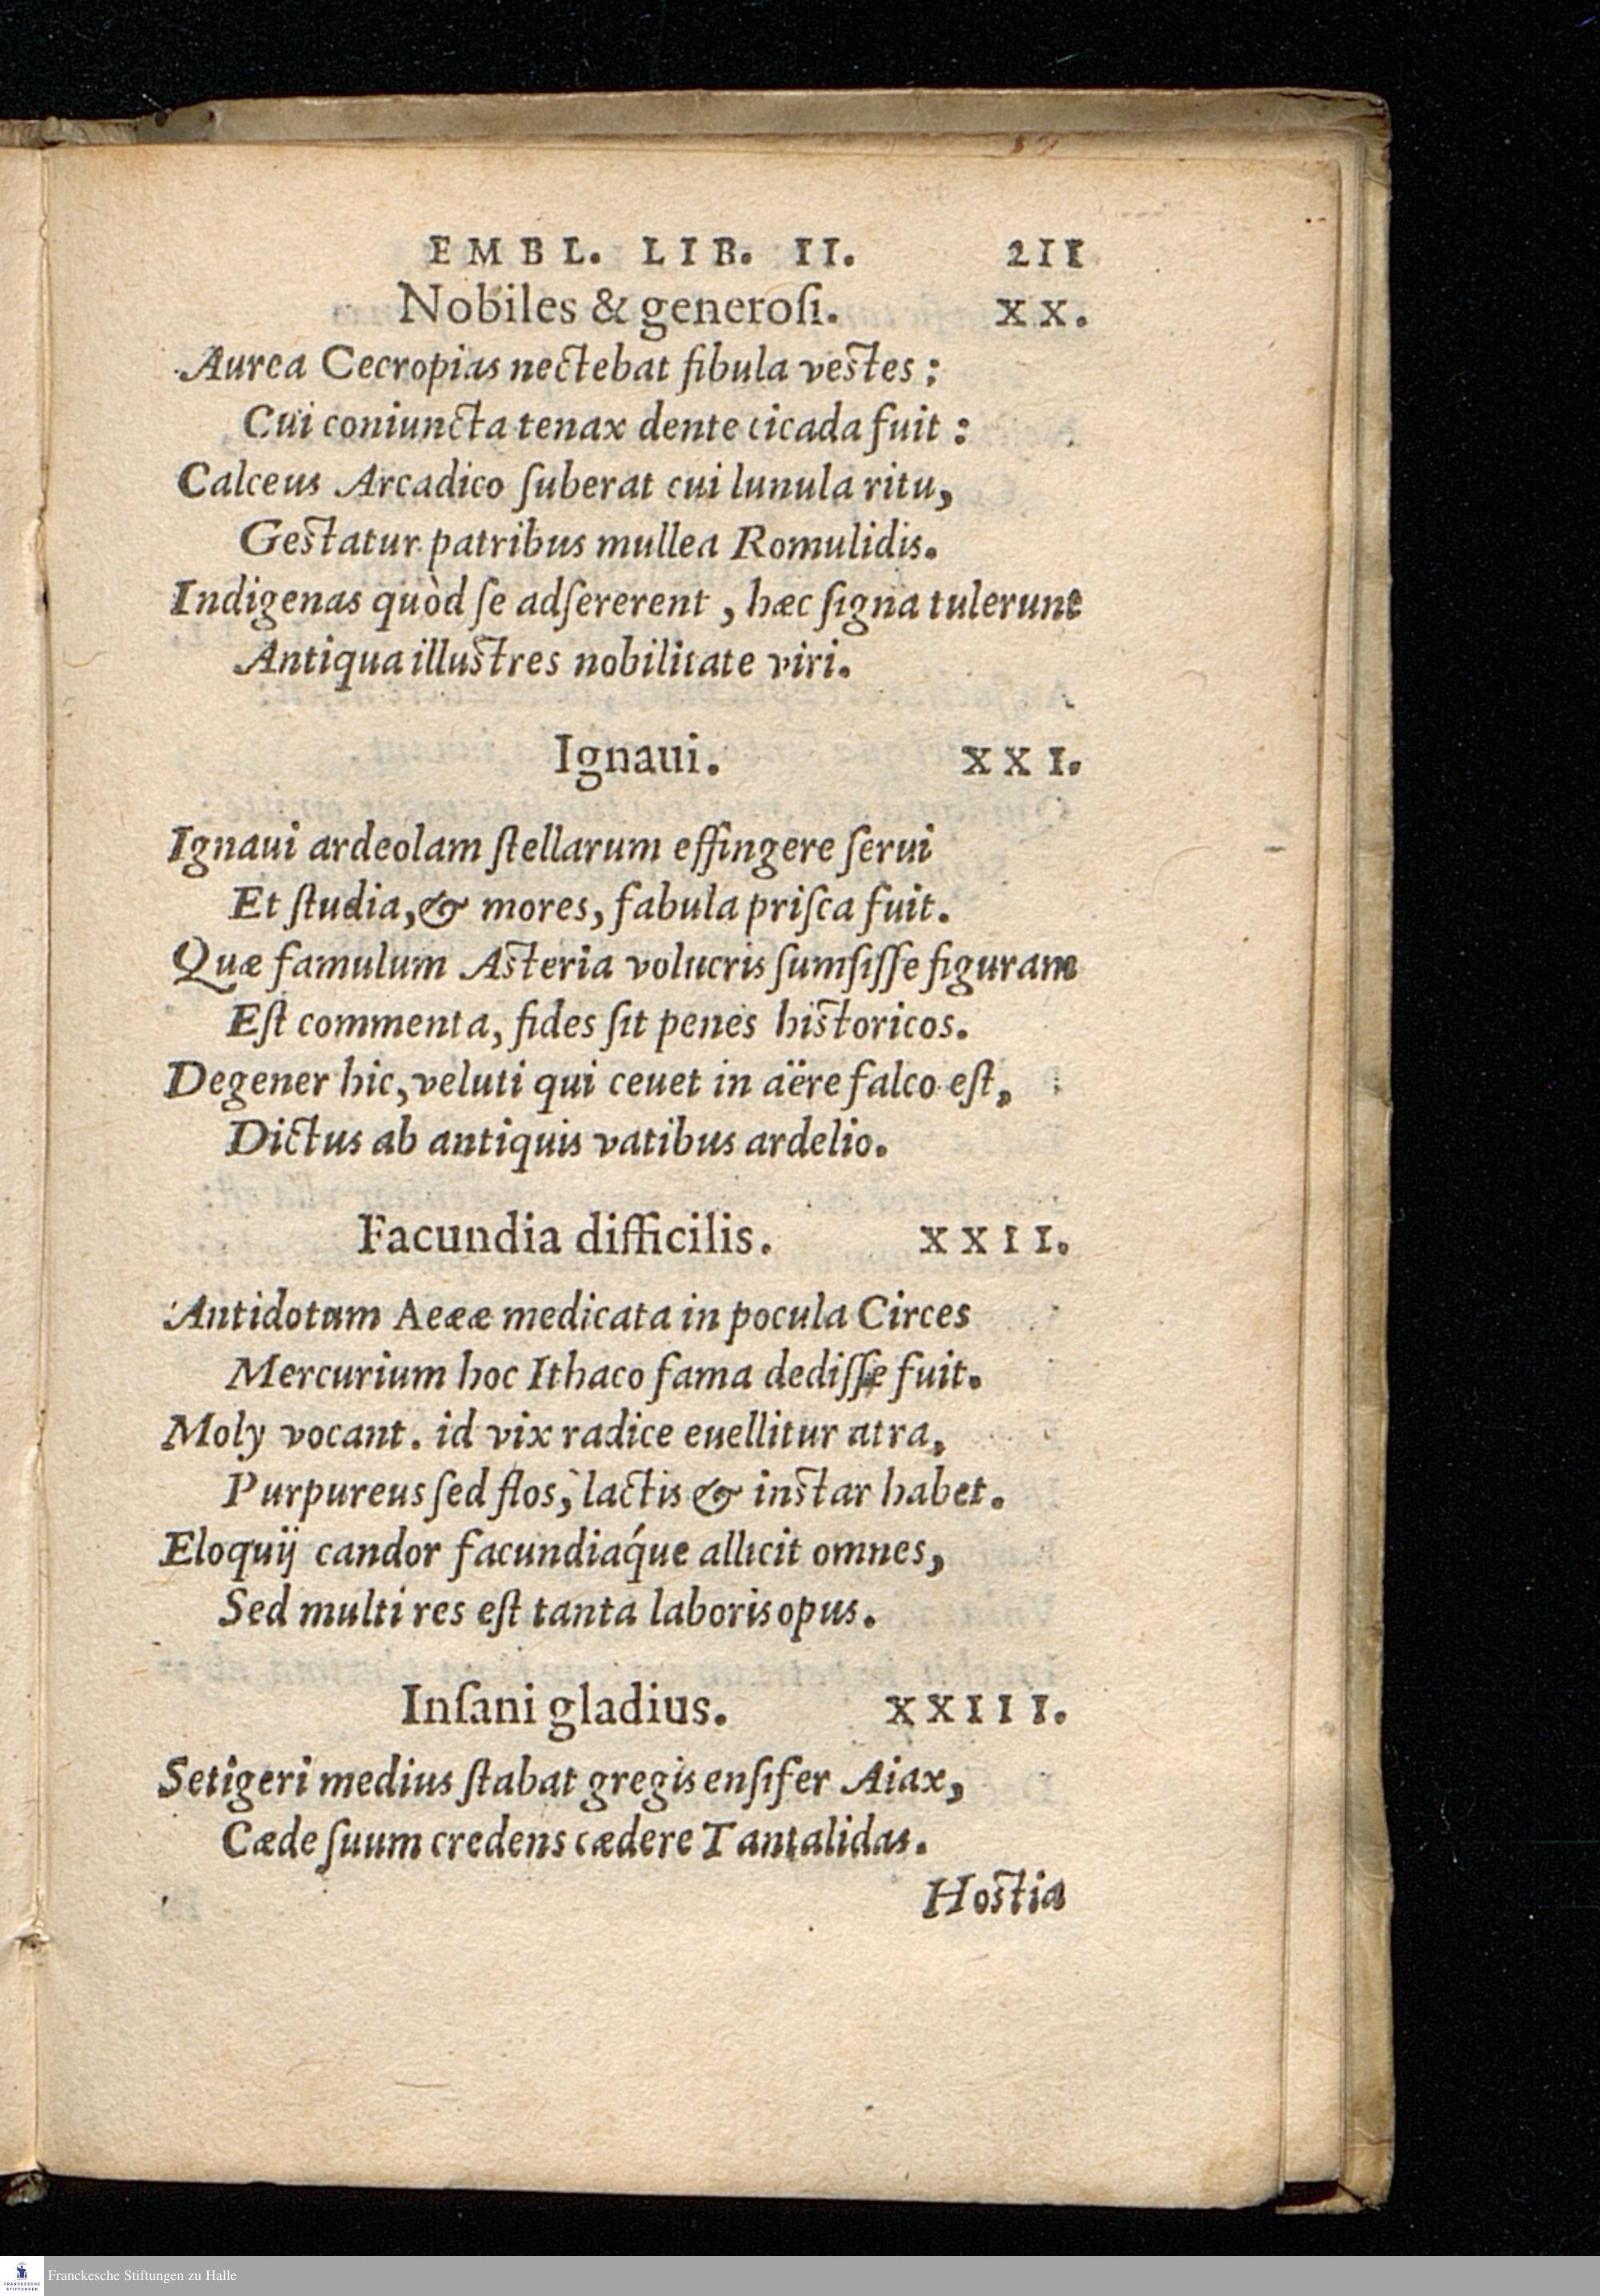 EMBL. LIB. II. 211
Nobiles & generoſi. XX.
Aurea Cecropias nectebat fibula vestes:
Cui coniuncta tenax dente cicada fuit:
Calceus Arcadico ſuberat cui lunula ritu,
Gestatur patribus mullea Romulidis.
Indigenas quòd ſe adſererent, hæc ſigna tulerunt
Antiqua illustres nobilitate viri.
Ignaui. XXI.
Ignaui ardeolam ſtellarum effingere ſerui
Et ſtudia, & mores, fabula priſca fuit.
Quæ famulum Asteria volucris ſumſiſſe figuram
Eſt commenta, fides ſit penes historicos.
Degener hic, veluti qui ceuet in aëre falco eſt,
Dictus ab antiquis vatibus ardelio.
Facundia difficilis. XXII.
Antidotum Aeææ medicata in pocula Circes
Mercurium hoc Ithaco fama dediſſe fuit.
Moly vocant. id vix radice euellitur atra,
Purpureus ſed flos, lactis & instar habet.
Eloquij candor facundiáque allicit omnes,
Sed multi res eſt tanta laboris opus.
Inſani gladius. XXIII.
Setigeri medius ſtabat gregis enſifer Aiax,
Cæde ſuum credens cædere Tantalidas.
Hostia
FRANCKESCHE STIFTUNGEN
Franckesche Stiftungen zu Halle